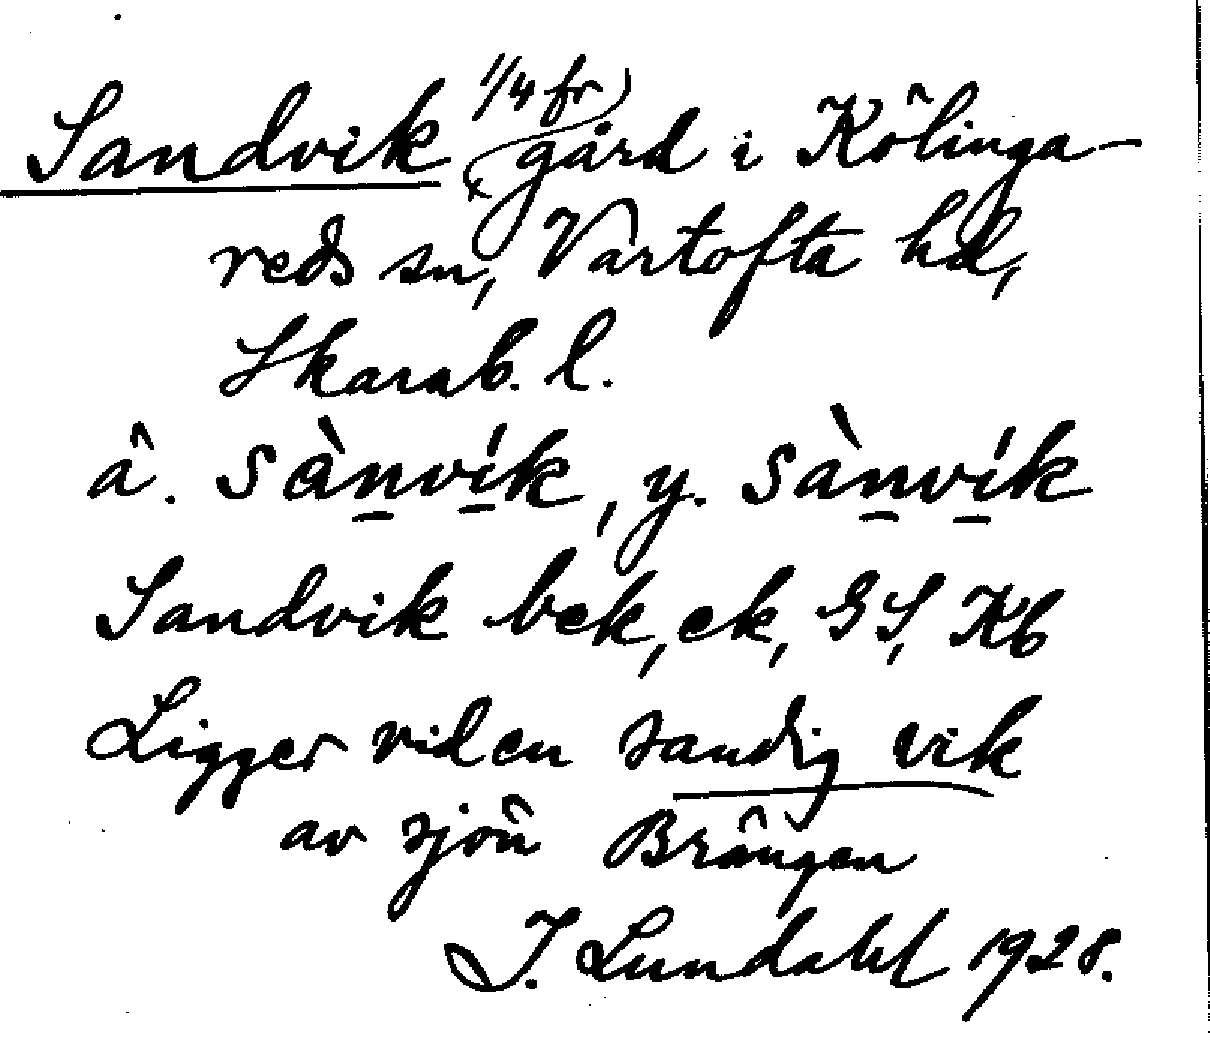 Sandvik (1/4 fr) gård i Kölinga-
reds sn, Vartofta hd,
Skarab. l.
ä. sàn̲ví̲k, y. sàn̲ví̲k
Sandvik bek, ek, GS, Kb
Ligger vid en sandig vik
av sjön Brängen
J. Lundahl 1928.